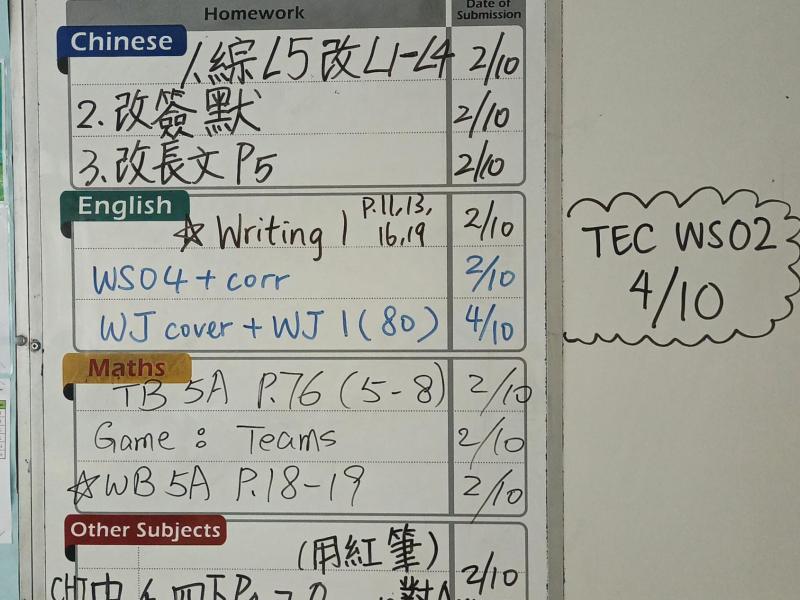 Homework
Date of
Submission
Chinese
1.綜L5改L1-L4 2/10
2.改簽默 2/10
3.改長文P5 2/10
English
☆Writing 1 P.11,13,
16,19 2/10
WS04+corr 2/10
WJ cover+WJ 1(80) 4/10
Maths
TB 5A P.76 (5-8) 2/10
Game: Teams 2/10
☆WB 5A P.18-19 2/10
Other Subjects
(用紅筆)
2/10
TEC WS02
4/10